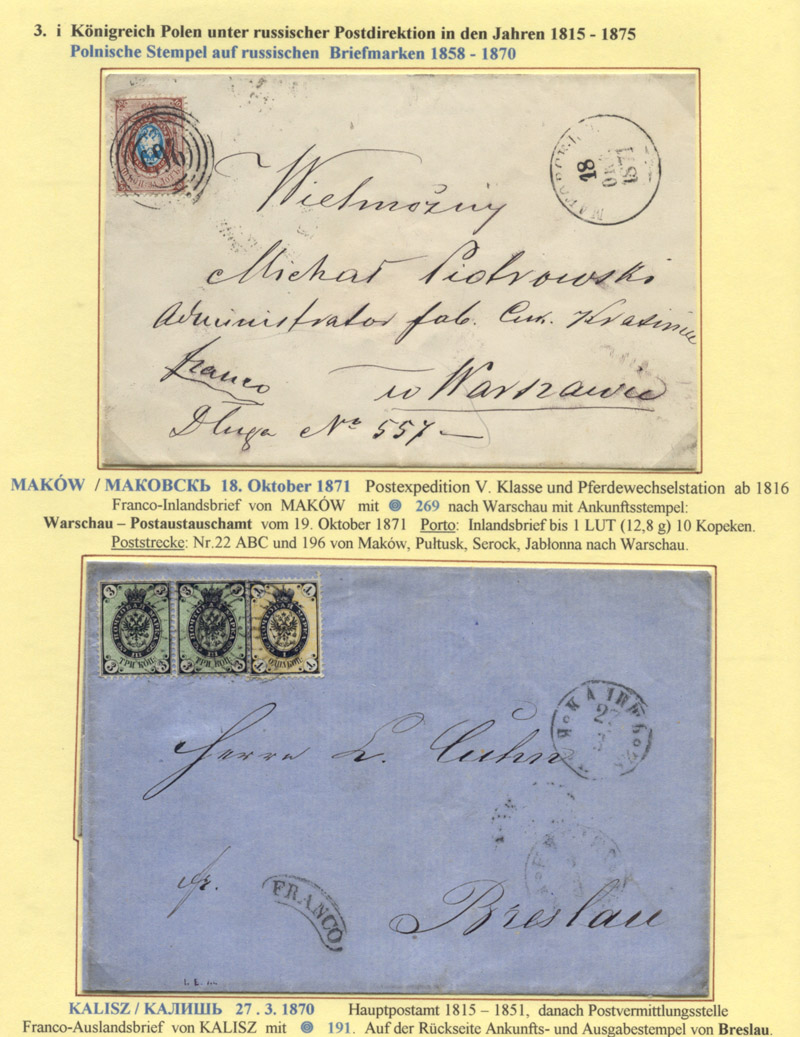 3. i Königreich Polen unter russischer Postdirektion in den Jahren 1815 - 1875
Polnische Stempel auf russischen Briefmarken 1858 - 1870
18
1871
Wielmożny
Michał Piotrowski
Administrator fab. Cuk. Krasiniec
franco
w Warszawie
Długa No 557
MAKÓW / МАКОВСКЬ 18. Oktober 1871 Postexpedition V. Klasse und Pferdewechselstation ab 1816
Franco-Inlandsbrief von MAKÓW mit 269 nach Warschau mit Ankunftsstempel:
Warschau – Postaustauschamt vom 19. Oktober 1871 Porto: Inlandsbrief bis 1 LUT (12,8 g) 10 Kopeken.
Poststrecke: Nr.22 ABC und 196 von Maków, Pułtusk, Serock, Jabłonna nach Warschau.
3 3 3 3 1 1
ПОЧТОВАЯ МАРКА ПОЧТОВАЯ МАРКА ПОЧТОВАЯ МАРКА
ТРИ КОП. ТРИ КОП. ОДНА КОП.
27
Herrn L. Cuhn
fr.
FRANCO
Breslau
KALISZ / КАЛИШЬ 27 . 3. 1870 Hauptpostamt 1815 – 1851, danach Postvermittlungsstelle
Franco-Auslandsbrief von KALISZ mit 191. Auf der Rückseite Ankunfts- und Ausgabestempel von Breslau.